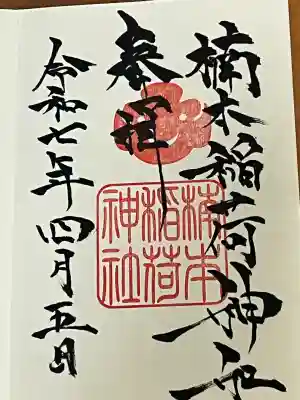 楠木稲荷神社
奉拝
令和七年四月五日
楠木
稲荷
神社